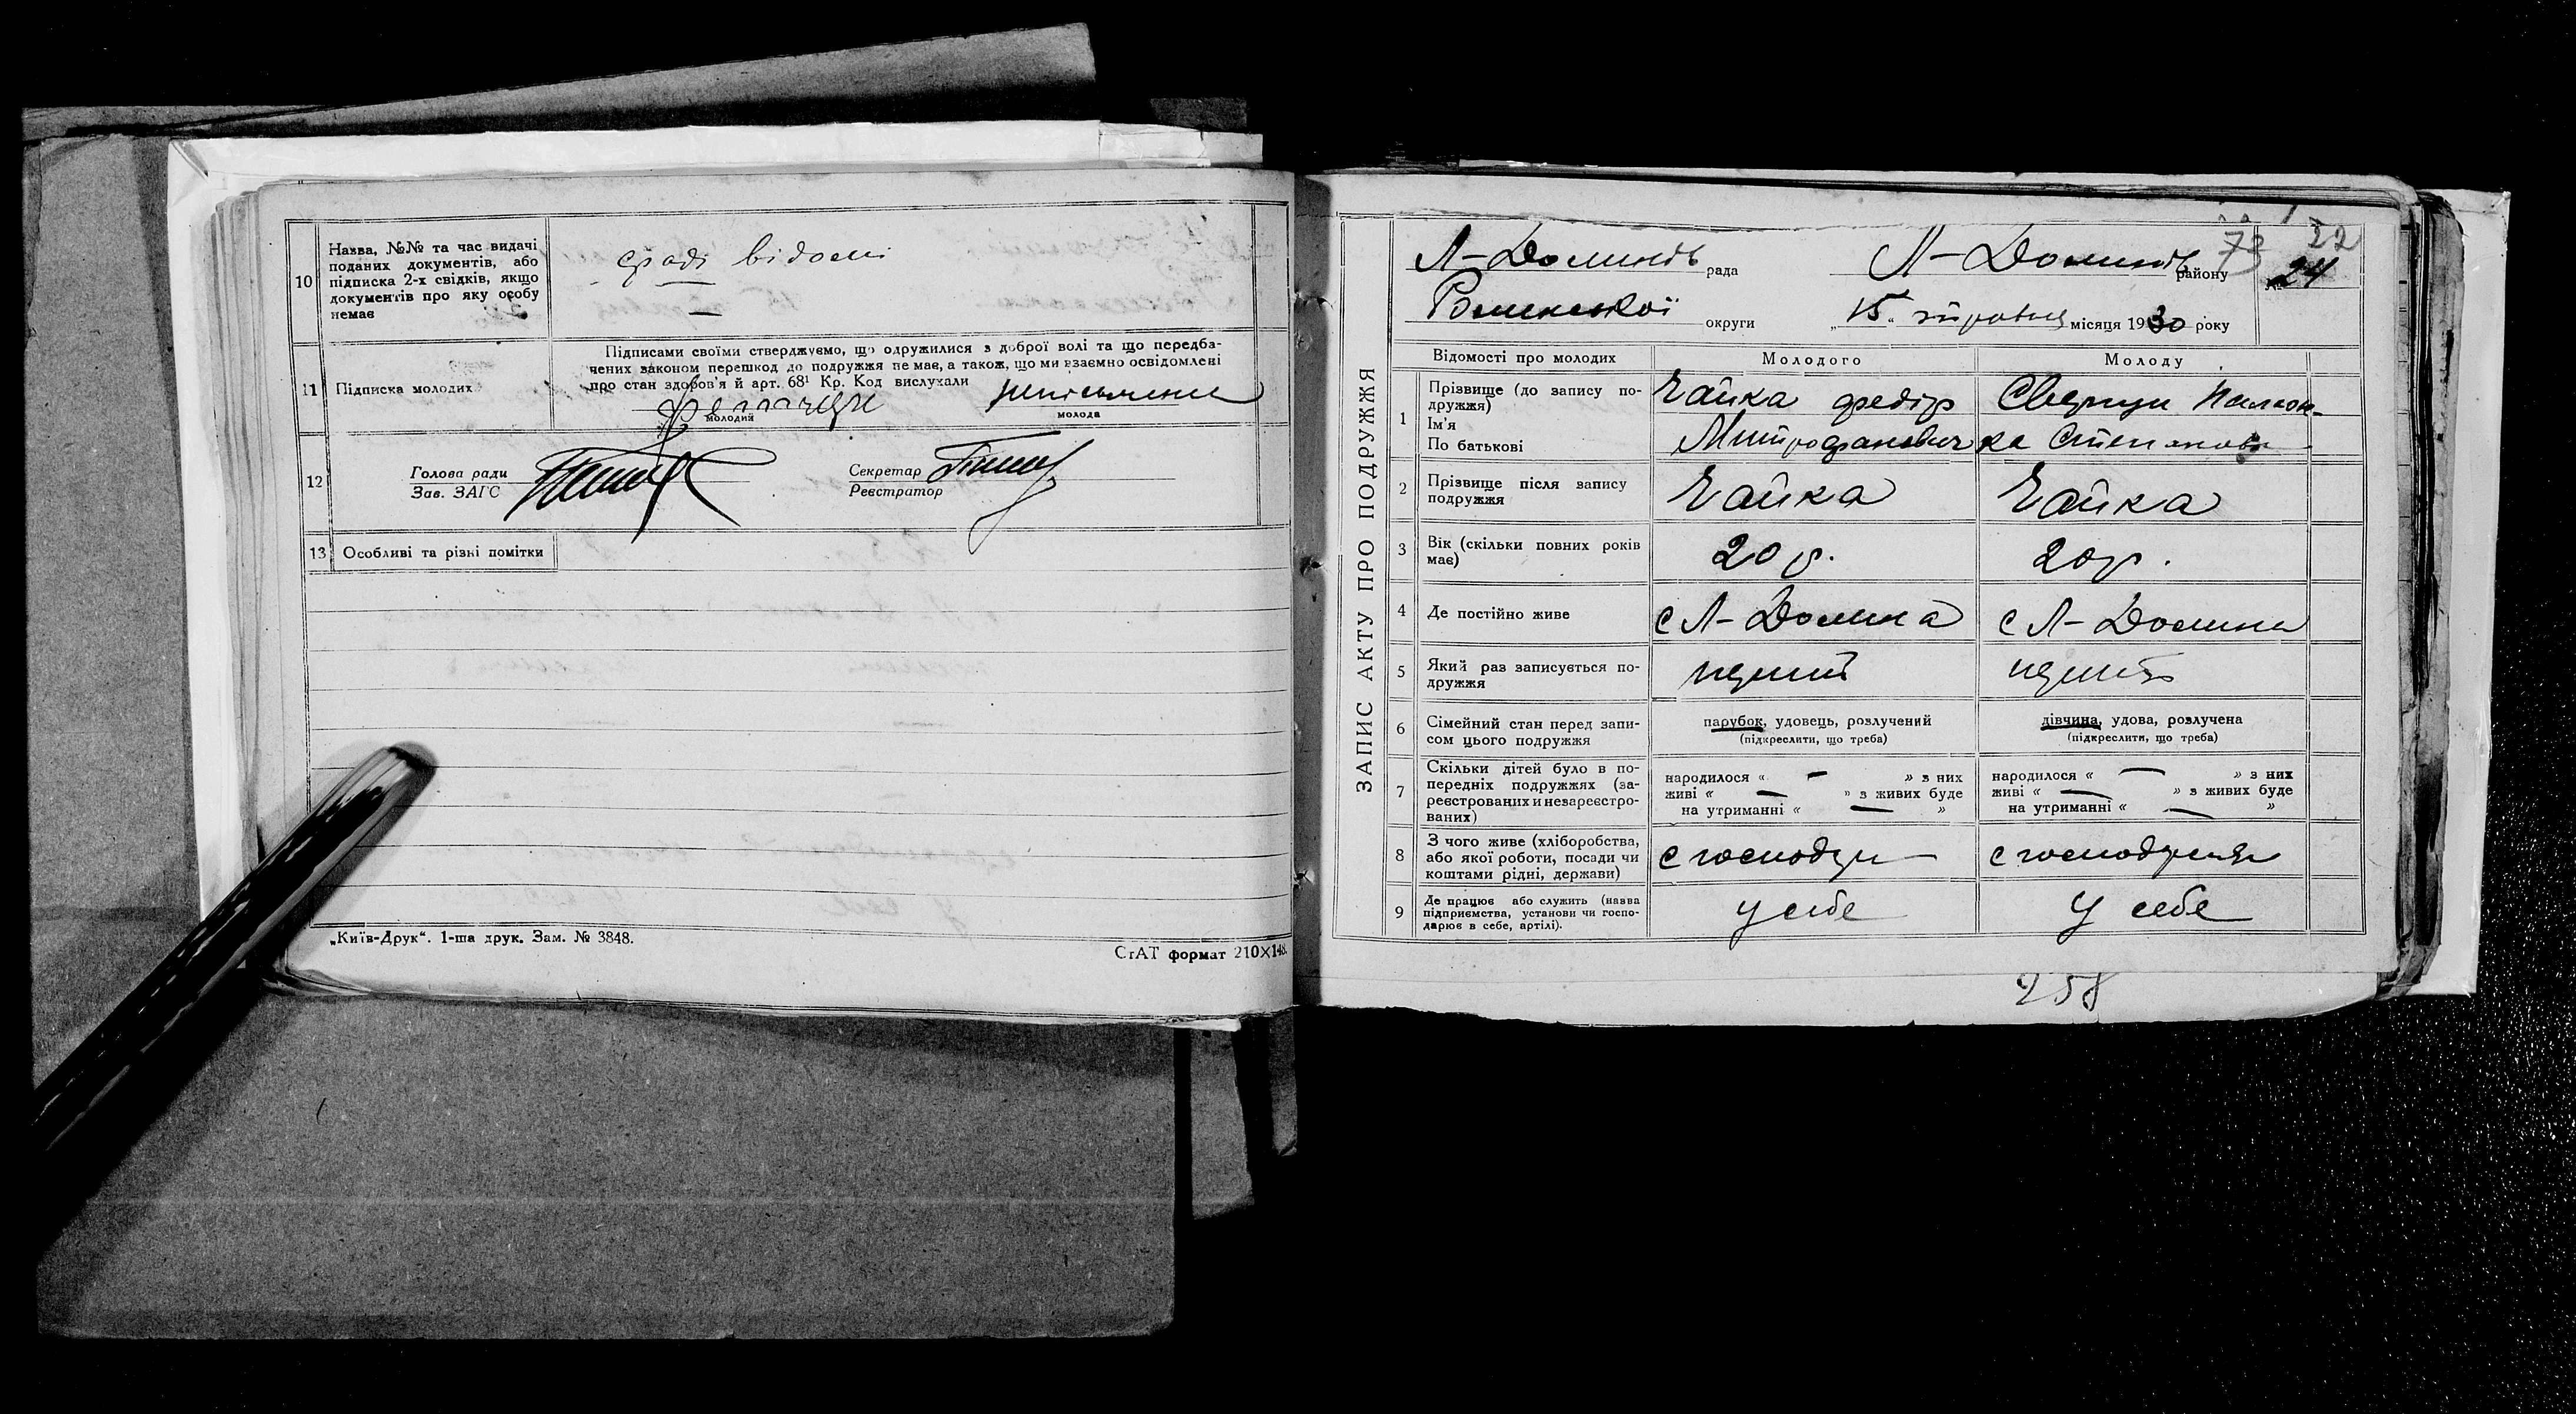 10
Назва, №№ та час видачі
поданих документів, або
підписка 2-х свідків, якщо
документів про яку особу
немає
раді відомі
11
Підписка молодих
Підписами своїми стверджуємо, що одружилися з доброї волі та що передба-
чених законом перешкод до подружжя немає, а також, що ми взаємно освідомлені
про стан здоров'я й арт. 68¹ Кр. Код вислухали
молодий
молода
12
Голова ради
Зав. ЗАГС
Секретар
Реєстратор
13 Особливі та різні помітки
„Київ-Друк“. 1-ша друк. Зам. № 3848.
СгАТ формат 210×148.
ЗАПИС АКТУ ПРО ПОДРУЖЖЯ
22
73
Л-Долинсь рада Л-Долинсь району № 24
Роменської округи „15“ травня місяця 1930 року
Відомості про молодих Молодого Молоду
1
Прізвище (до запису по-
дружжя)
Ім'я
По батькові
Чайка Федір
Митрофанович
2
Прізвище після запису
подружжя
Чайка Чайка
3
Вік (скільки повних років
має)
20 р. 20 р.
4 Де постійно живе с Л-Долина с Л-Долина
5
Який раз записується по-
дружжя
6
Сімейний стан перед запи-
сом цього подружжя
парубок, удовець, розлучений
(підкреслити, що треба)
дівчина, удова, розлучена
(підкреслити, що треба)
7
Скільки дітей було в по-
передніх подружжях (за-
реєстрованих и незареєстро-
ваних)
народилося « — » з них
живі « — » з живих буде
на утриманні « — »
народилося « — » з них
живі « — » з живих буде
на утриманні « — »
8
З чого живе (хліборобства,
або якої роботи, посади чи
коштами рідні, держави)
9
Де працює або служить (назва
підприємства, установи чи госпо-
дарює в себе, артілі).
у себе у себе
258